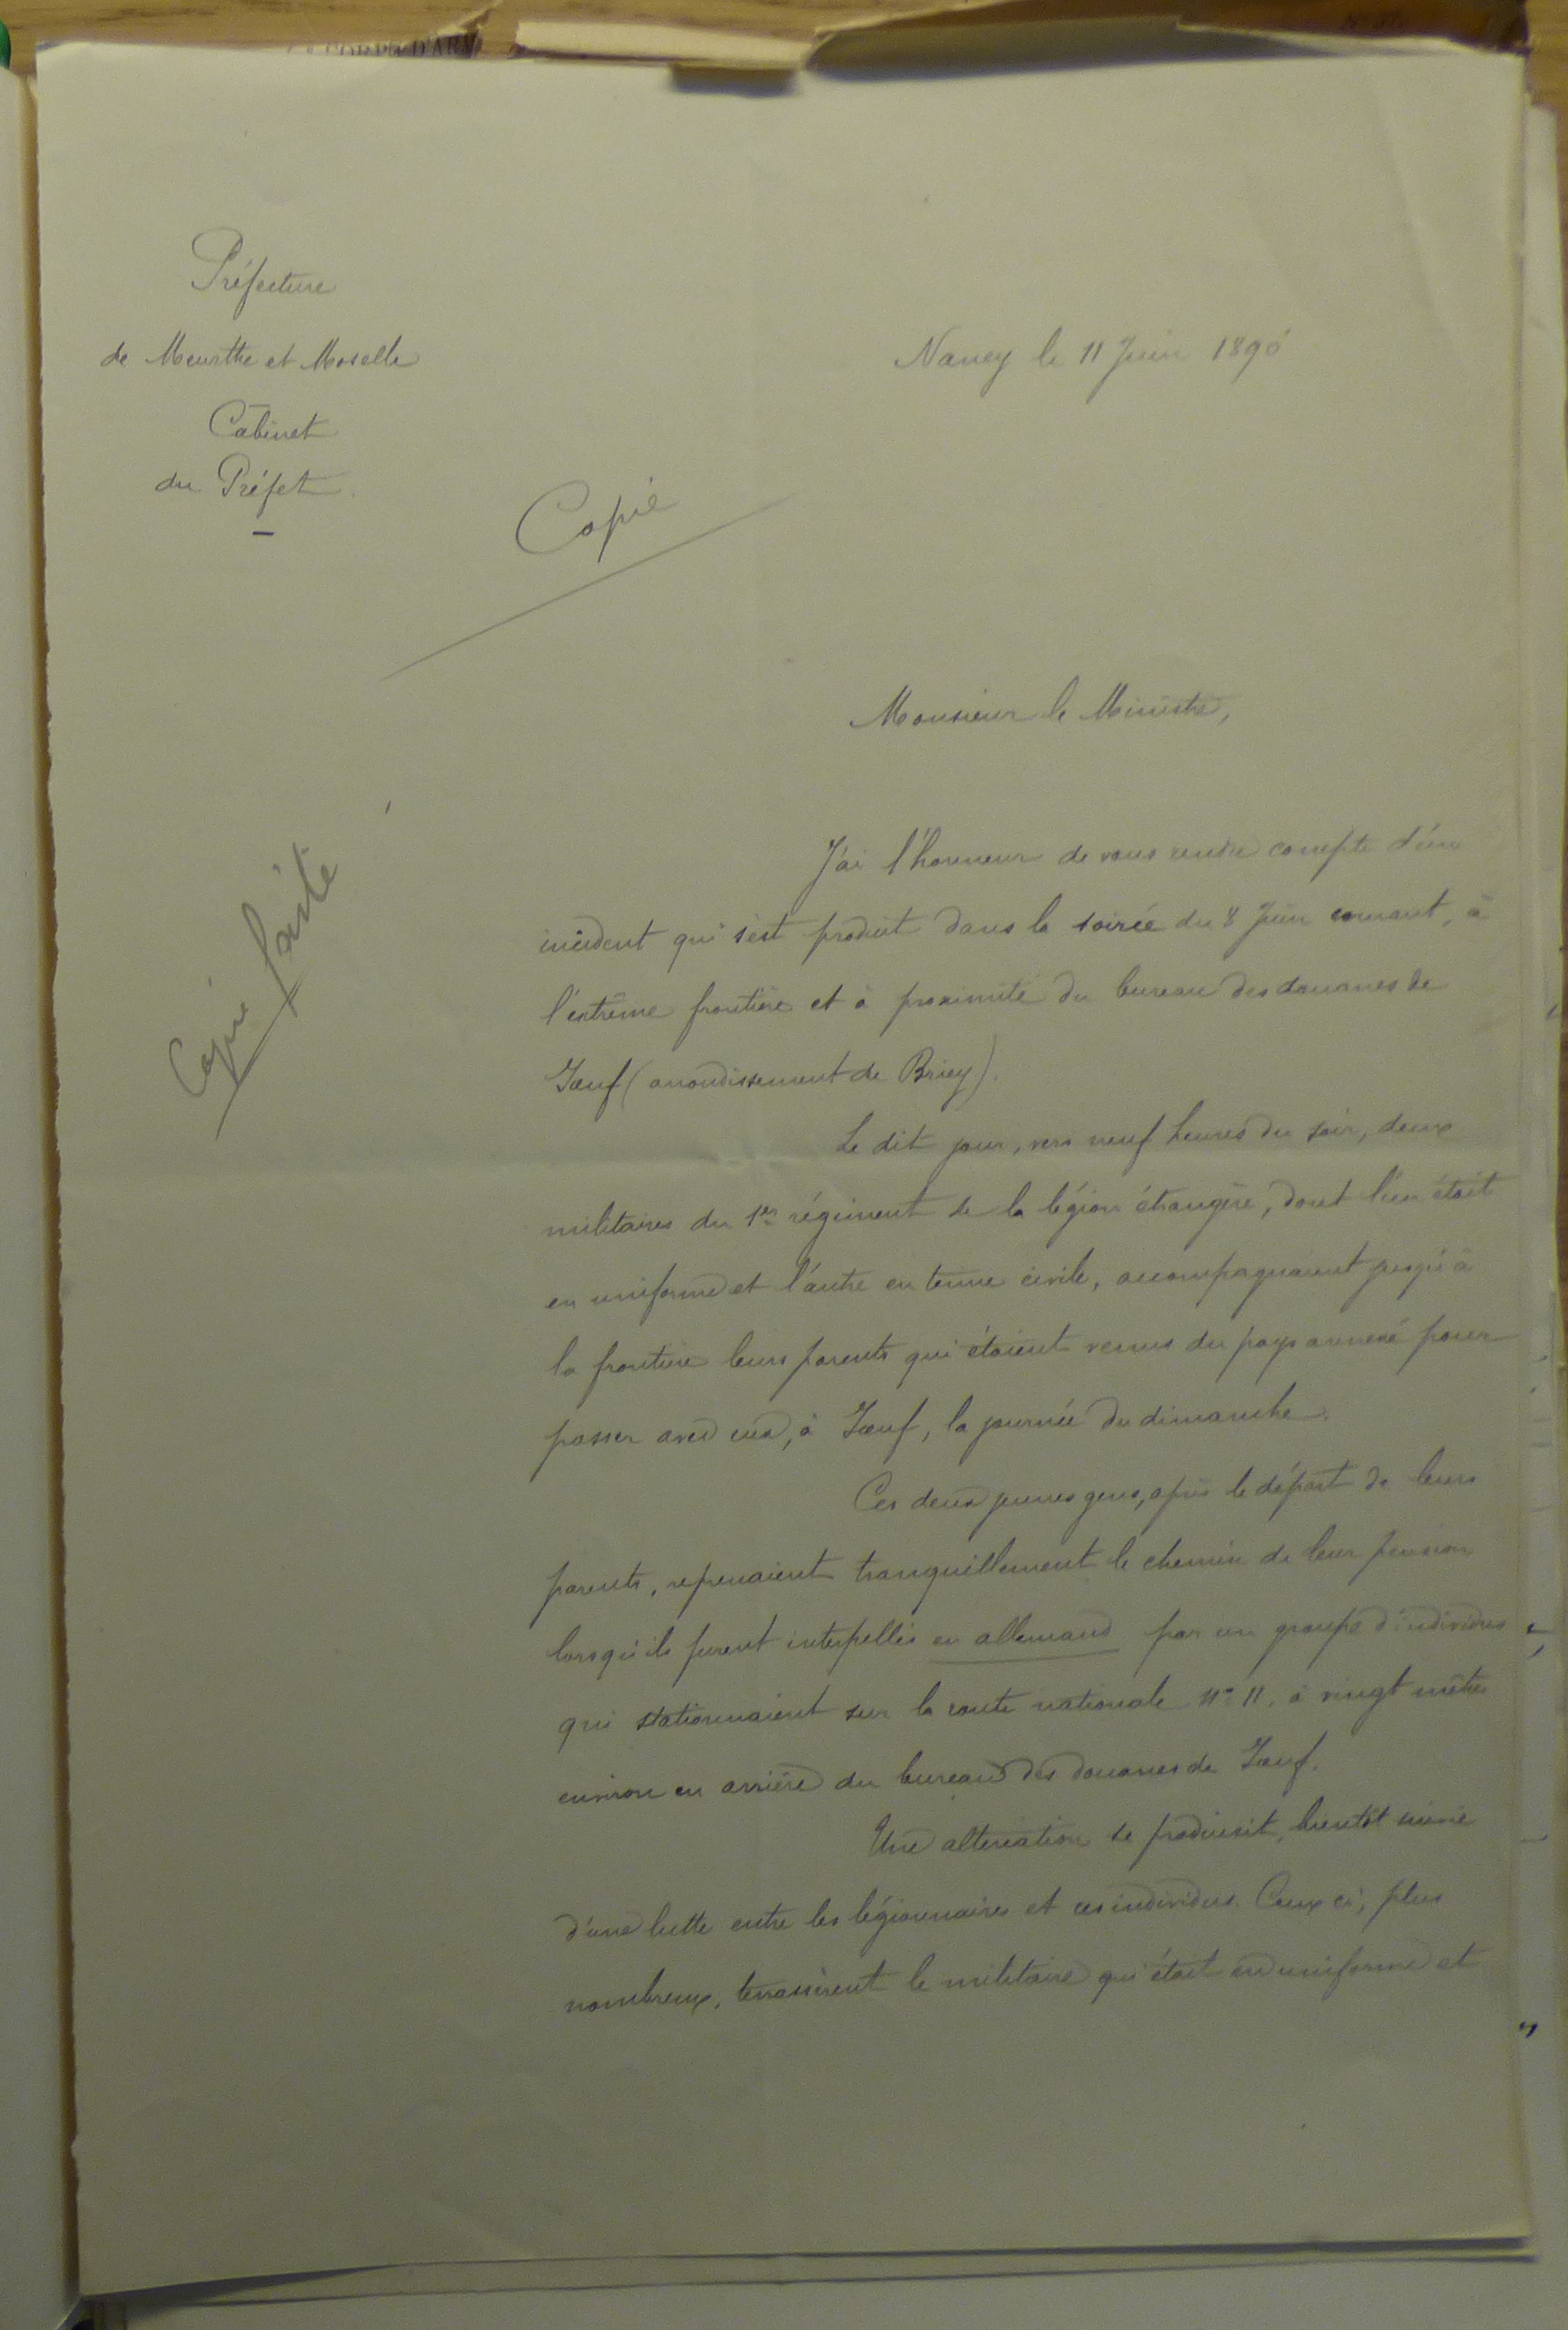 CORPS D'ARM
Préfecture
de Meurthe et Moselle
Cabinet
du Préfet.
Nancy le 11 Juin 1890
Copie
Monsieur le Ministre,
Copie faite
J'ai l'honneur de vous rendre compte d'un
incident qui s'est produit dans la soirée du 8 Juin courant, à
l'extrême frontière et à proximité du bureau des douanes de
Jœuf (arrondissement de Briey).
Le dit jour, vers neuf heures du soir, deux
militaires du 1er régiment de la légion étrangère, dont l'un était
en uniforme et l'autre en tenue civile, accompagnaient jusqu'à
la frontière leurs parents qui étaient venus du pays annexé pour
passer avec eux, à Jœuf, la journée du dimanche.
Ces deux jeunes gens, après le départ de leurs
parents, reprenaient tranquillement le chemin de leur pension
lorsqu'ils furent interpellés en allemand par un groupe d'individus
qui stationnaient sur la route nationale n° 11, à vingt mètres
environ en arrière du bureau des douanes de Jœuf.
Une altercation se produisit, bientôt suivie
d'une lutte entre les légionnaires et ces individus. Ceux ci, plus
nombreux, terrassèrent le militaire qui était en uniforme et